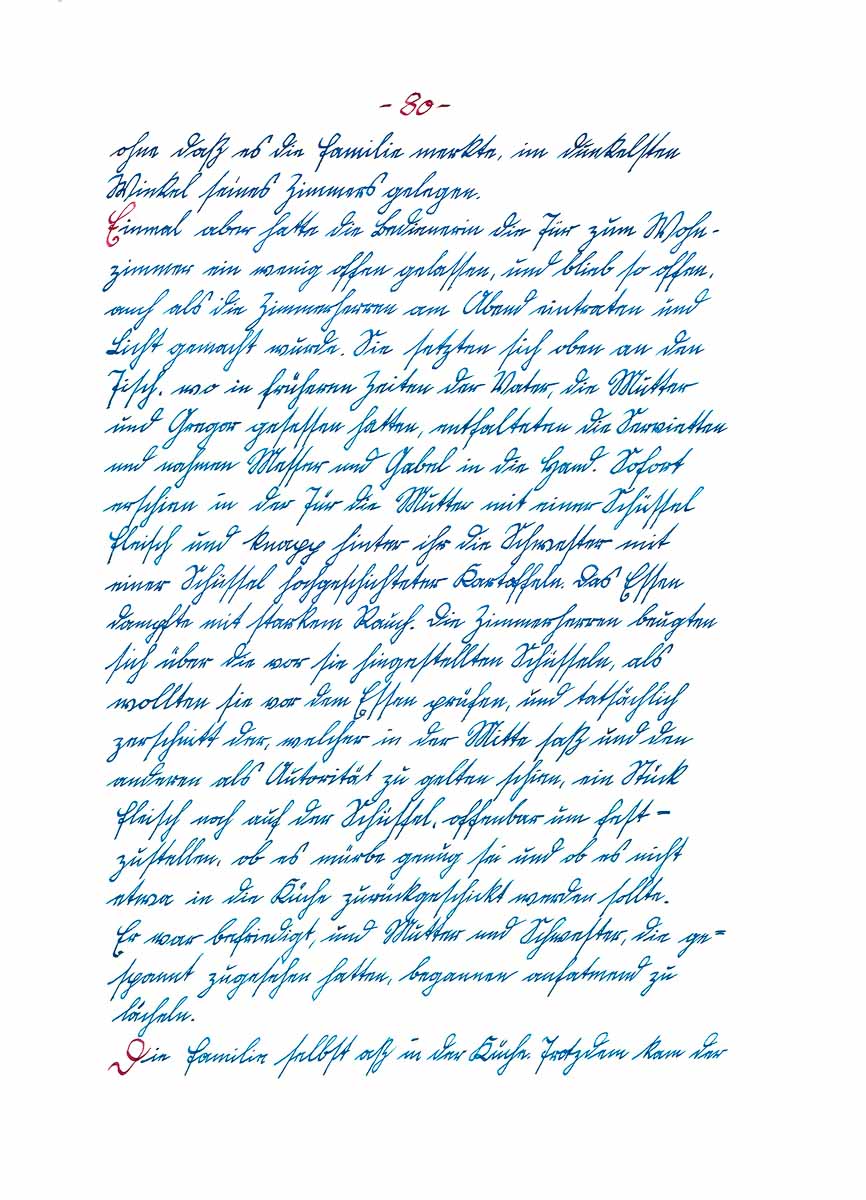 - 80 -
ohne daß es die Familie merkte, im dunkelsten
Winkel seines Zimmers gelegen.
Einmal aber hatte die Bedienerin die Tür zum Wohn-
zimmer ein wenig offen gelassen, und blieb so offen,
auch als die Zimmerherren am Abend eintraten und
Licht gemacht wurde. Sie setzten sich oben an den
Tisch, wo in früheren Zeiten der Vater, die Mutter
und Gregor gesessen hatten, entfalteten die Servietten
und nahmen Messer und Gabel in die Hand. Sofort
erschien in der Tür die Mutter mit einer Schüssel
Fleisch und knapp hinter ihr die Schwester mit
einer Schüssel hochgeschichteter Kartoffeln. Das Essen
dampfte mit starkem Rauch. Die Zimmerherren beugten
sich über die vor sie hingestellten Schüsseln, als
wollten sie vor dem Essen prüfen, und tatsächlich
zerschnitt der, welcher in der Mitte saß und den
anderen als Autorität zu gelten schien, ein Stück
Fleisch noch auf der Schüssel, offenbar um fest=
zustellen, ob es mürbe genug sei und ob es nicht
etwa in die Küche zurückgeschickt werden sollte.
Er war befriedigt, und Mutter und Schwester, die ge=
spannt zugesehen hatten, begannen aufatmend zu
lächeln.
Die Familie selbst aß in der Küche. Trotzdem kam der